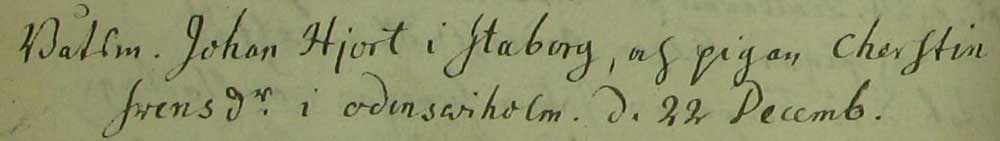 Båtsm. Johan Hjort i Staborg, och pigan Cherstin
Svensdr. i odenswiholm. d. 22 Decemb.